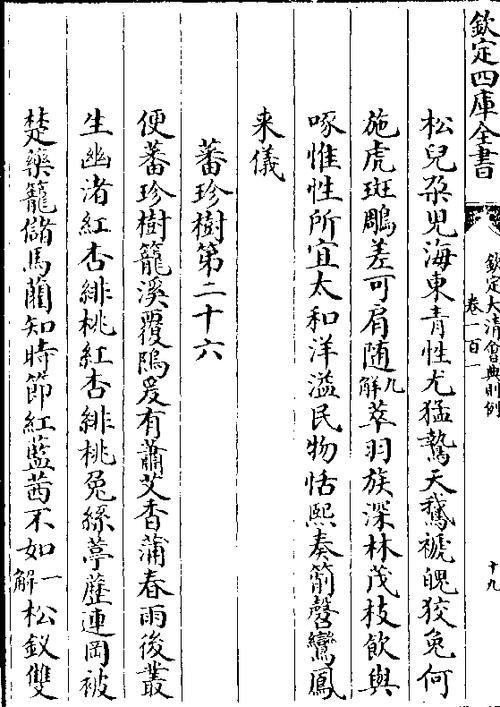 欽定四庫全書
欽定大清會典則例
卷一百一
十九
松兒朶兒海東青性尤猛鷙天鵝褫魄狡兔何
施虎斑鵰差可肩随九解萃羽族深林茂枝飲與
啄惟性所宜太和洋溢民物恬熙奏箾磬鸞鳳
来儀
蕃珍樹第二十六
便蕃珍樹籠溪覆隝爰有蕭艾香蒲春雨後叢
生幽渚紅杏緋桃紅杏緋桃兔絲葶藶連岡被
楚藥籠儲馬藺知時節紅藍茜不如一解松釵雙